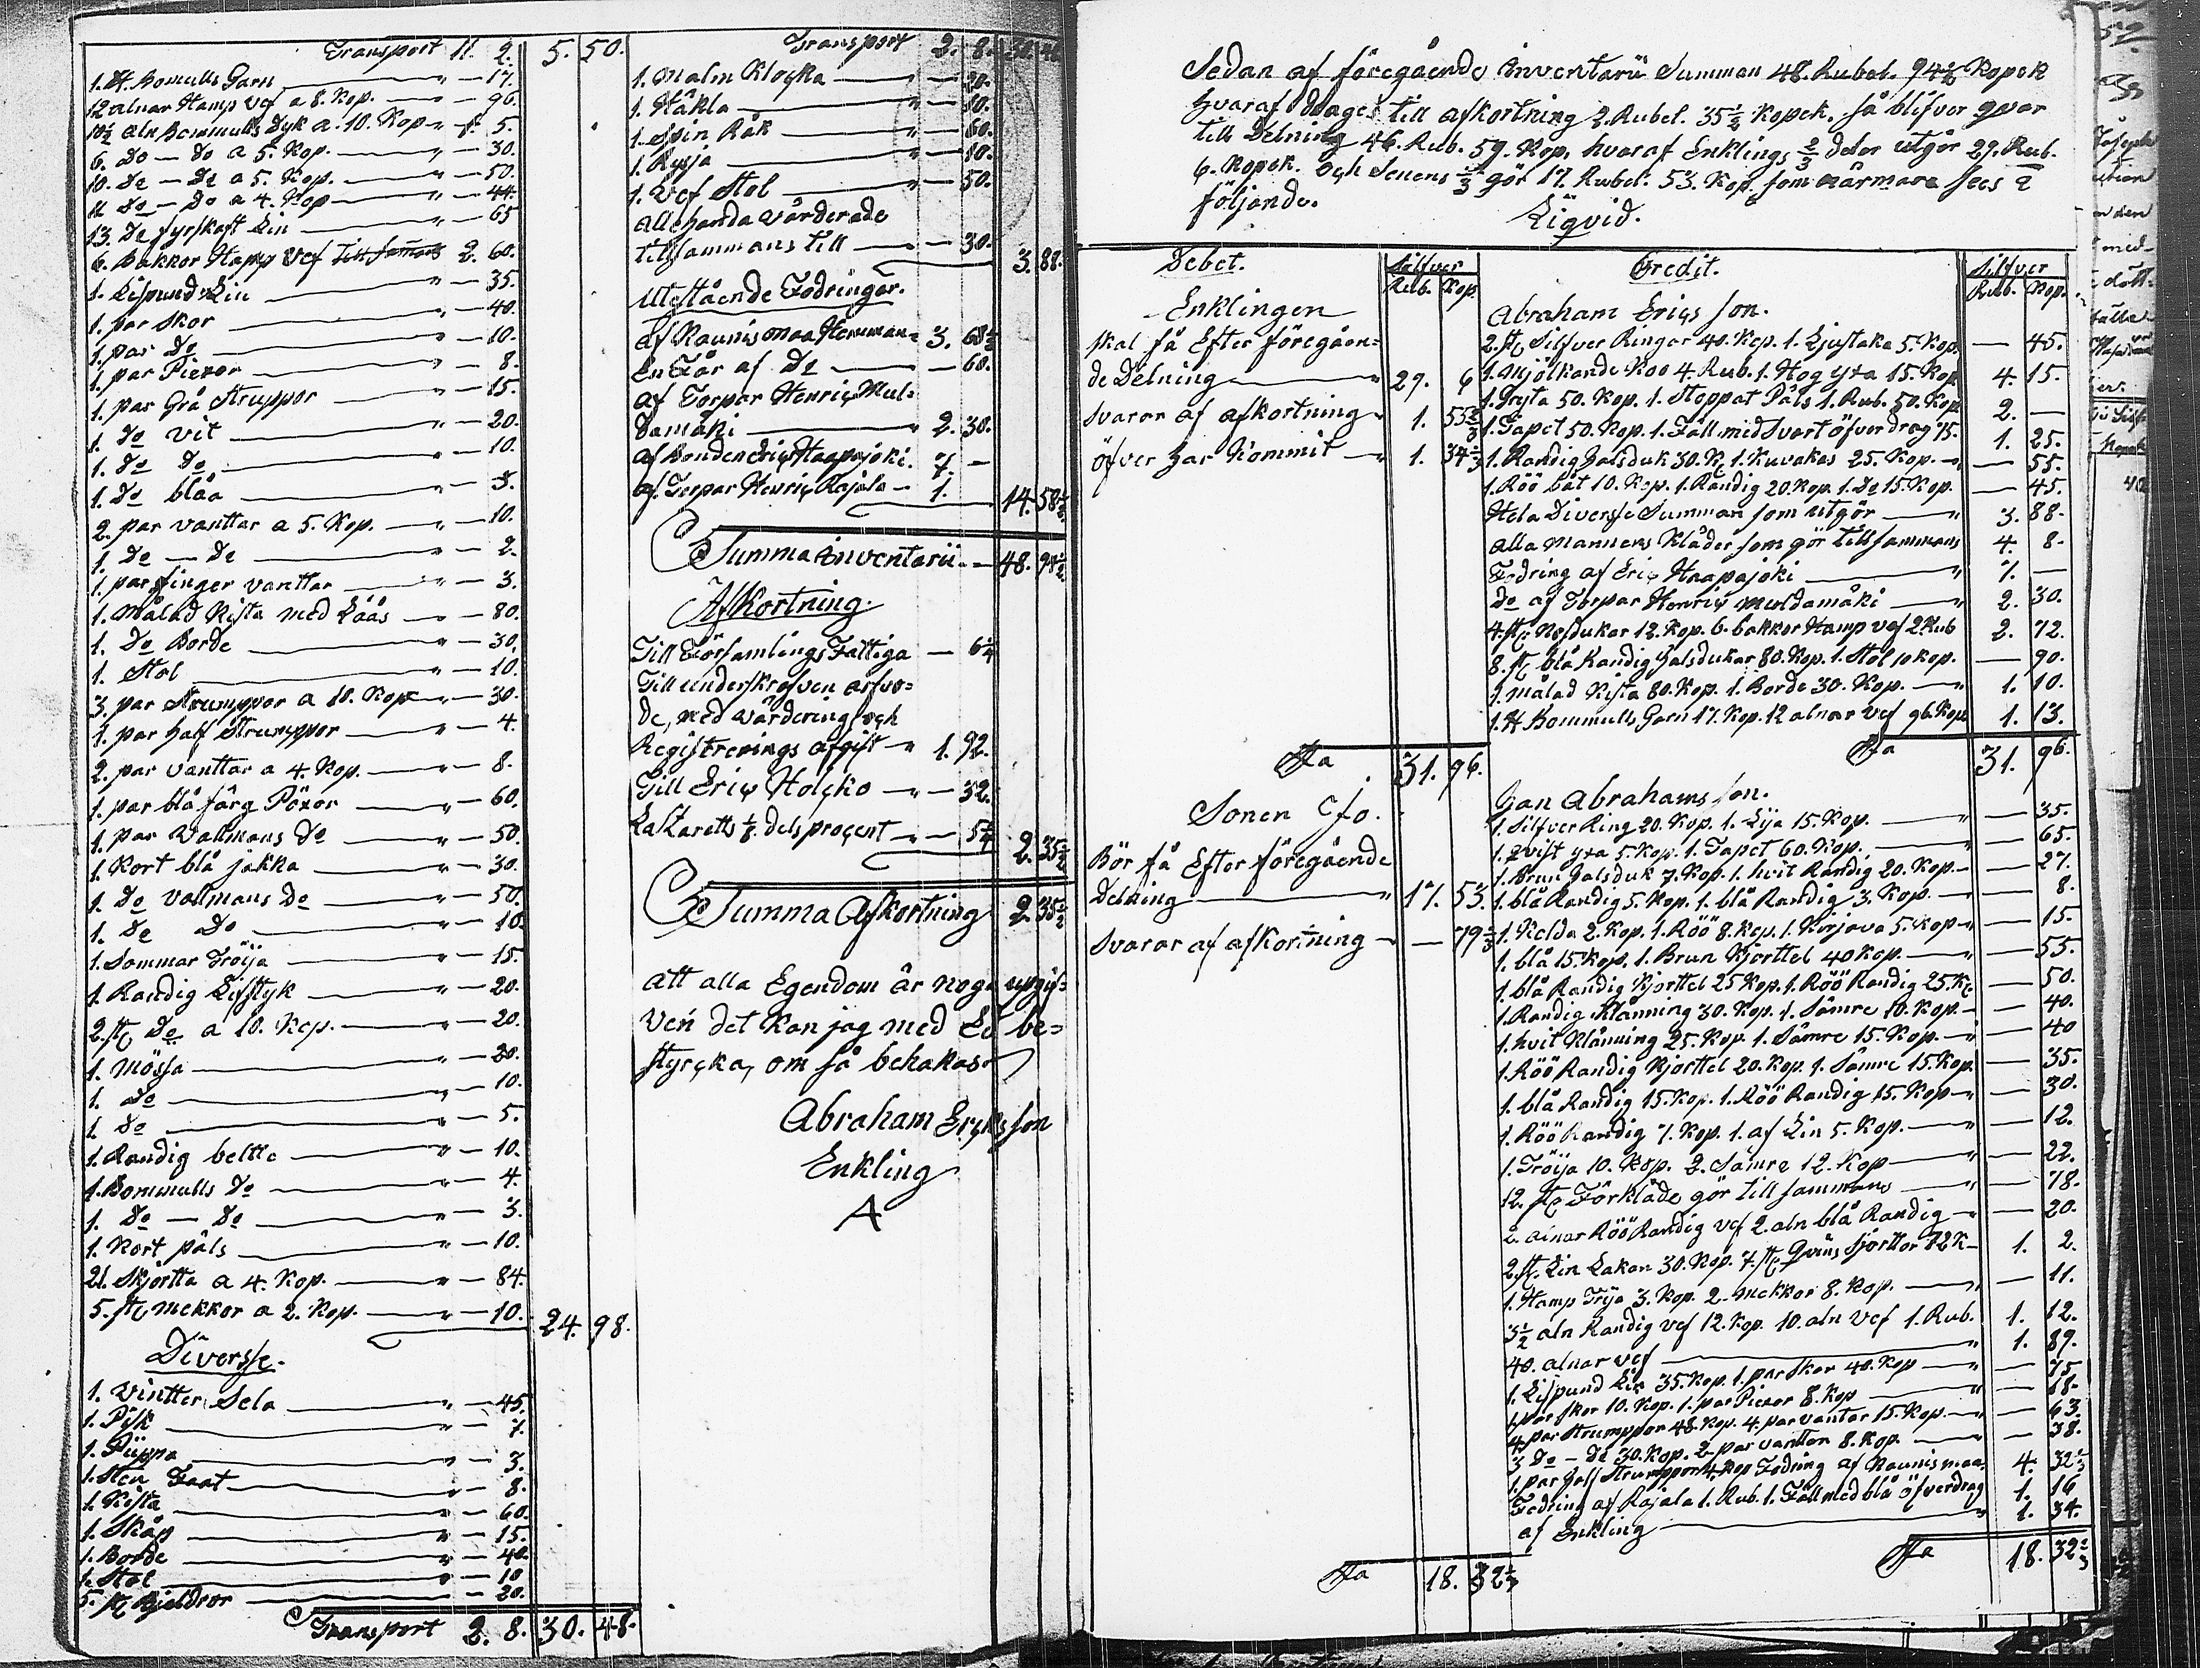 Transport 11. 2. 5. 50.
1. ℔ Bomulls Garn — " — 17.
12 alnar Hamp Vef a 8. Kop. — " — 96.
10½ aln Bommulls Dyk a. 10. Kop " 1. 5.
6. Do — Do a 5. Kop. — " — 30.
10. Do — Do a 5. Kop. — " — 50.
11 Do — Do a 4. Kop — " — 44.
13. Do fyrskaft Lin — " — 65
6. Bakkor Hamp Vef till samans 2. 60.
1. Lispund Lin — " — 35.
1. par skor — " — 40.
1. par Do — " — 10.
1. par Piexor — " — 8.
1. par Grå Strumpor — " — 15.
1. Do vit — " — 20.
1. Do Do — " — 10.
1. Do blåa — " — 3.
2. par vanttar a 5. Kop. — " — 10.
1. Do — Do — " — 2.
1. par finger vanttar — " — 3.
1. Målad Kista med Låås — " — 80.
1. Do Borde — " — 30.
1. Stol — " — 10.
3. par Strumppor a 10. Kop — " — 30.
1. par half Strumppor — " — 4.
2. par vanttar a 4. Kop. — " — 8.
1. par blå färg Pöxor — " — 60.
1. par Wallmans Do — " — 50.
1. Kort blå jakka — " — 30.
1. Do vallmans Do — " — 50.
1. Do Do — " — 10.
1. Sommar Tröija — " — 15.
1. Randig Lifstyk — " — 20.
2. st. Do a 10. Kop. — " — 20.
1. Mössa — " — 20.
1. Do — " — 10.
1. Do — " — 5.
1. Randig beltte — " — 10.
1. Bommulls Do — " — 4.
1. Do — Do — " — 3.
1. Kort päls — " — 10.
21. Skjortta a 4. Kop. — " — 84.
5. st. mekkor a 2. Kop. — " — 10. 24. 98.
Diversse.
1. Vintter Sela — " — 45.
1. Pisk — " — 7.
1. Piippa — " — 3.
1. Sten Faat — " — 8.
1. Kista — " — 60.
1. Skåp — " — 15.
1. Borde — " — 40.
1. Stol — " — 10
5. st. Bjeldror — " — 20.
Transport 2. 8. 30. 48.
Transport 2. 8. 30. 48
1. Malm Klocka — " — 20.
1. Häkla — " — 10.
1. Spin Råk — " — 60.
1. Rysja — " — 10.
1. Vef Stol — " — 50.
allehanda värderade
tillsammans till — — 30. 3. 88.
Utestående Fodringar.
af Kaunismaa Hemman " 3. 68½
En Får af Do — — 60.
af Torpar Henric Mul=
damäki — " 2. 30.
af Bonden Eric Haapajoki. 7. —
af Torpar Henric Rajala — 1. — 14. 58½.
Summa inventarii — 48. 94½.
Afkortning.
Till Församlings Fattiga — 6¼
Till underskrefven arfvo=
de, med värdering och
Registrerings afgift — " 1. 92.
Till Eric Holcko — " — 32.
Lazaretts ⅛ dels procent — " — 5¼ 2. 35½
Summa Afkortning 2. 35½
att alla Egendom är noga upgif=
ven det kan jag med Ed be=
styrcka, om så behakas
Abraham Ericksson
Enkling
A
Sedan af föregående inventarii Summan 48. Rubel. 94½ Kopek
hvaraf drages till afkortning 2. Rubel. 35½ Kopek. så blifver qvar
till Delning 46. Rub. 59. Kop. hvaraf Enklings ⅔ delar utgör 29. Rub.
6. Kopek. och Sonens ⅓ gör 17. Rubel. 53. Kop. som närmare sees i
följande.
Liqvid.
Debet. Silfver Rub. Kop.
Enklingen
skal få Efter föregåen=
de Delning — " 29. 6
svarar af afkortning " 1. 55⅔
öfver har kommit — " 1. 34⅓
Sa 31. 96.
Sonen Jo.
Bör få Efter föregående
Delning — " 17. 53.
svarar af afkortning — — 79⅓
Sa 18. 32⅓
Credit. Silfver Rub. Kop.
Abraham Ericsson.
2. st. Silfver Ringar 40. Kop. 1. Ljustaka 5. Kop. — 45.
1. Mjölkande Koo 4. Rub. 1. Hog yxa 15. Kop. 4. 15.
1. Gryta 50. Kop. 1. Stoppat Päls 1. Rub. 50. Kop 2. —
1. Tapet 50. Kop. 1. Fäll med svart öfverdrag 75. 1. 25.
1. Randig halsduk 30. K. 1. Kuvakas 25. Kop. — 55.
1. Röö båt 10. Kop. 1. Randig 20. Kop. 1. Do 15. Kop. — 45.
Hela Diversse Summan som utgör — " 3. 88.
Alla Mannens Kläder som gör tillsammans 4. 8.
Fodring af Eric Haapajoki — " 7. —
Do af Torpar Henric Muldamäki — " 2. 30.
4. st. Nesdukar 12. Kop. 6. bakkor Hamp vef 2 Rub 2. 72.
8. st. blå Randig halsdukar 80. Kop. 1. Stol 10 kop. — 90.
1. målad Kista 80. Kop. 1. Borde 30. Kop. — " 1. 10.
1. ℔ Bommulls Garn 17. Kop. 12 alnar vef 96. Kop. 1. 13.
Sa 31. 96.
Johan Abrahamsson.
1. Silfver Ring 20. Kop. 1. Lija 15. Kop. — " — 35.
1. Qvist yxa 5. Kop. 1. Tapet 60. Kop. — " — 65.
1. Brun halsduk 7. Kop. 1. hvit Randig 20. Kop. — 27.
1. blå Randig 5. Kop. 1. blå Randig 3. Kop. — " — 8.
1. Kolda 2. Kop. 1. Röö 8. Kop. 1. Kirjava 5. Kop — 15.
1. blå 15. Kop. 1. Brun Kjorttel 40 Kop. — " — 55.
1. blå Randig Kjorttel 25 Kop. 1. Röö Randig 25. K. — 50.
1. Randig Klänning 30. Kop. 1. Sämre 10. Kop. — 40.
1. hvit Klänning 25. Kop. 1. Sämre 15. Kop. — " — 40
1. Röö Randig Kjorttel 20. Kop. 1. Sämre 15. Kop. — 35.
1. blå Randig 15. Kop. 1. Röö Randig 15. Kop — " — 30.
1. Röö Randig 7. Kop. 1. af Lin 5. Kop. — " — 12.
1. Tröija 10. Kop. 2. Sämre 12. Kop — " — 22.
12. st. Förkläde gör till sammans — " — 78.
2. alnar Röö Randig vef 2. aln blå Randig — " — 20.
2. st. Lin Lakan 30. Kop. 7. st. Qvins sjorttor 72 K. 1. 2.
1. Hamp Trija 3. Kop. 2. mekkor 8. Kop. — " — 11.
3½ aln Randig vef 12. Kop. 10. aln Vef 1. Rub. 1. 12.
40. alnar vef — " 1. 89.
1. Lispund Lin 35. Kop. 1. par skor 40. Kop — " — 75
1. par skor 10. Kop. 1. par Piexor 8. Kop — " — 18.
4. par Strumppor 48. Kop. 4. par vantar 15. Kop. — " — 63.
3 Do — Do 30. Kop. 2. par vanttar 8. Kop. — " — 38.
1. par half Strumppor 4. Kop Fodring af Kaunismaa 4. 32½
Fodring af Rajala 1. Rub. 1. Fäll med blå öfverdrag 1. 16
af Enkling — " 1. 34.
Sa 18. 32⅓